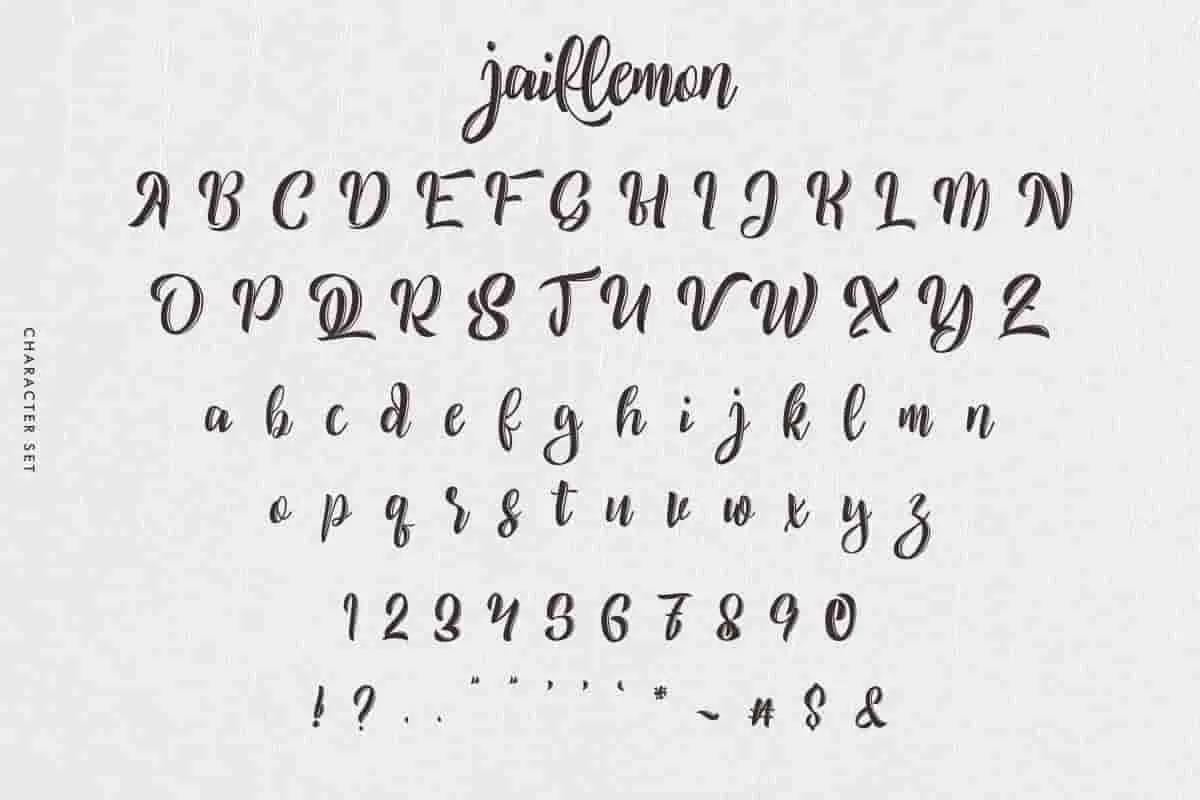 jaillemon
A B C D E F G H I J K L M N
O P Q R S T U V W X Y Z
a b c d e f g h i j k l m n
o p q r s t u v w x y z
1 2 3 4 5 6 7 8 9 0
! ? . . " " ’ ’ ‘ * ~ # $ &
CHARACTER SET